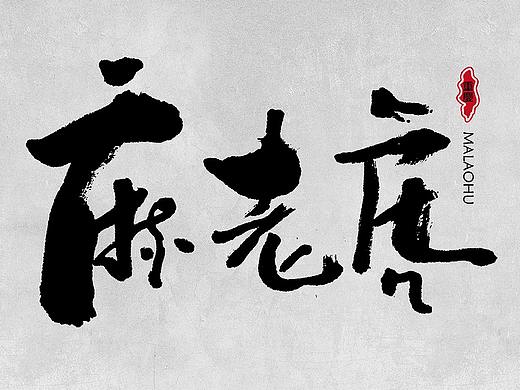 麻老虎
重慶
MALAOHU